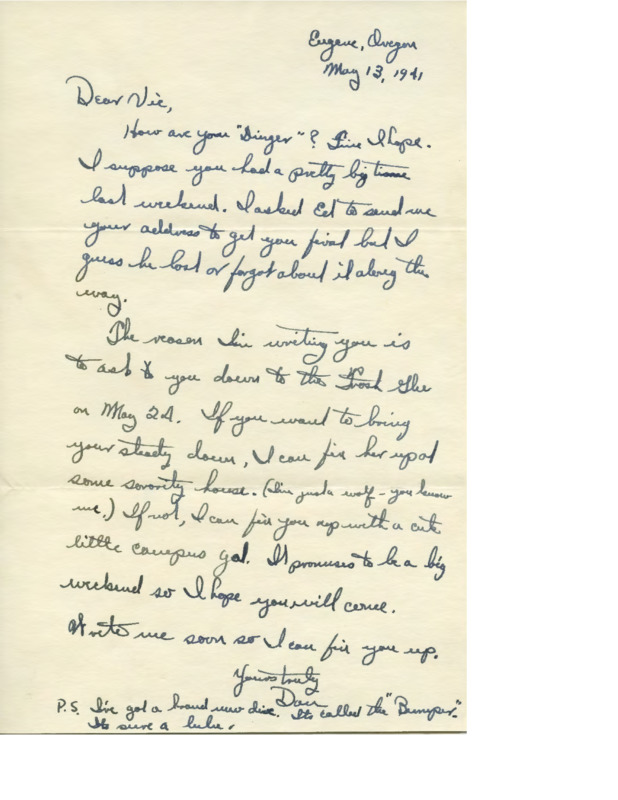 Eugene, Oregon
May 13, 1941
Dear Vic,
How are you "Dinger"? Fine I hope.
I suppose you had a pretty big time
last weekend. I asked Ed to send me
your address to get you first but I
guess he lost or forgot about it along the
way.
The reason I'm writing you is
to ask you down to the Frosh Glee
on May 24. If you want to bring
your steady down, I can fix her up at
some sorority house. (I'm just a wolf - you know
me.) If not, I can fix you up with a cute
little campus gal. It promises to be a big
weekend so I hope you will come.
Write me soon so I can fix you up.
Yours truly
Dan
P.S. I've got a brand new dive. Its called the "Bumper".
Its sure a lulu.